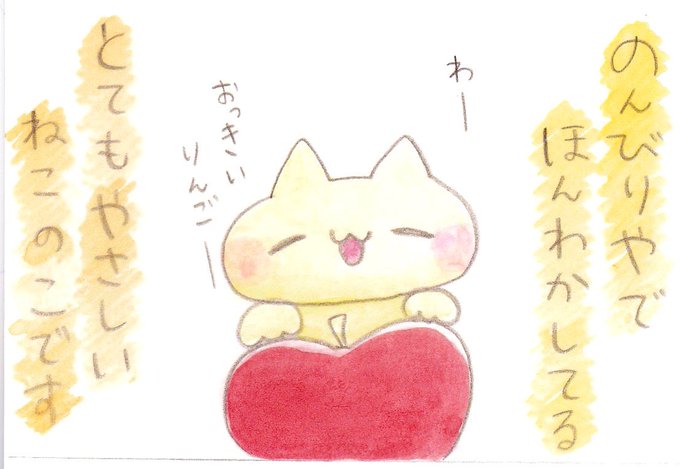 のんびりやで
ほんわかしてる
わー
おっきいい
りんごー
とてもやさしい
ねこのこです